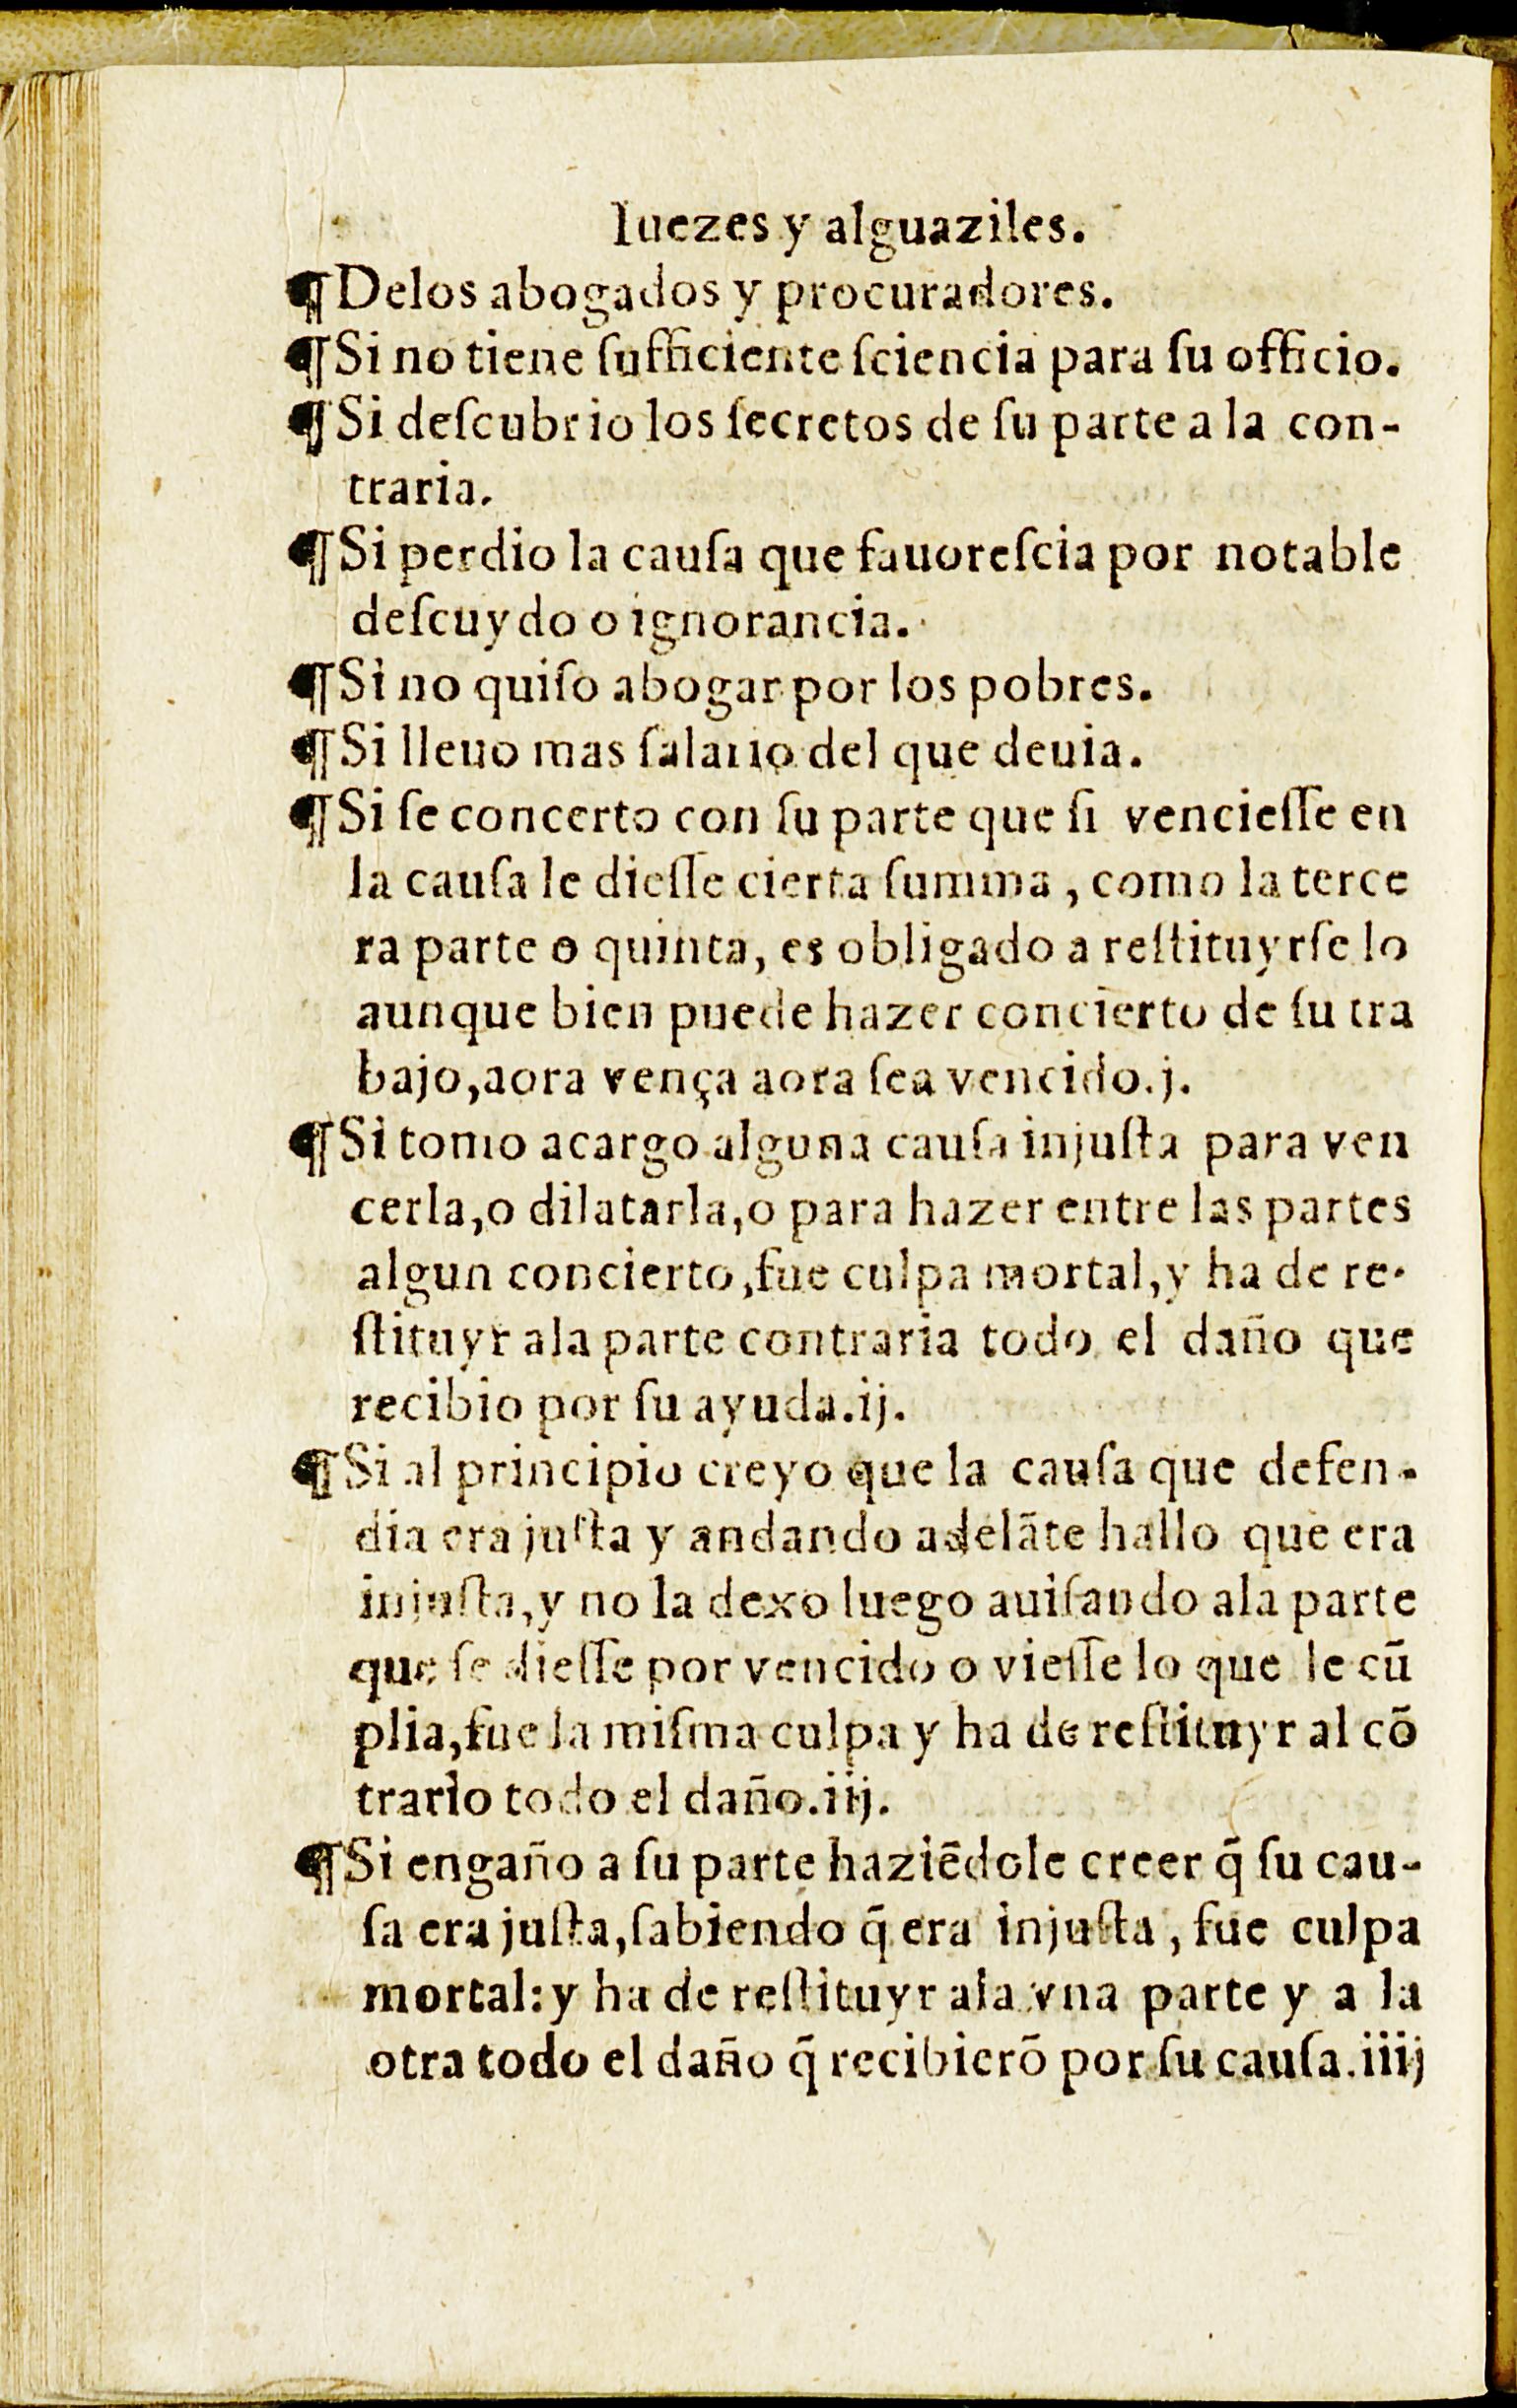 Iuezes y alguaziles.
¶Delos abogados y procuradores.
¶Si no tiene ſufficiente ſciencia para ſu officio.
¶Si deſcubrio los ſecretos de ſu parte a la con-
traria.
¶Si perdio la cauſa que fauoreſcia por notable
deſcuydo o ignorancia.
¶Si no quiſo abogar por los pobres.
¶Si lleuo mas ſalario del que deuia.
¶Si ſe concerto con ſu parte que ſi vencieſſe en
la cauſa le dieſſe cierta ſumma, como la terce
ra parte o quinta, es obligado a reſtituyrſe lo
aunque bien puede hazer concierto de ſu tra
bajo,aora vença aora ſea vencido.j.
¶Si tomo acargo alguna cauſa injuſta para ven
cerla,o dilatarla,o para hazer entre las partes
algun concierto,fue culpa mortal,y ha de re-
ſtituyr ala parte contraria todo el daño que
recibio por ſu ayuda.ij.
¶Si al principio creyo que la cauſa que defen-
dia era juſta y andando adelãte hallo que era
injuſta,y no la dexo luego auiſando ala parte
que ſe dieſſe por vencido o vieſſe lo que le cũ
plia,fue la miſma culpa y ha de reſtituyr al cõ
trario todo el daño.iij.
¶Si engaño a ſu parte haziẽdole creer q̃ ſu cau-
ſa era juſta,ſabiendo q̃ era injuſta, fue culpa
mortal:y ha de reſtituyr ala vna parte y a la
otra todo el daño q̃ recibierõ por ſu cauſa.iiij